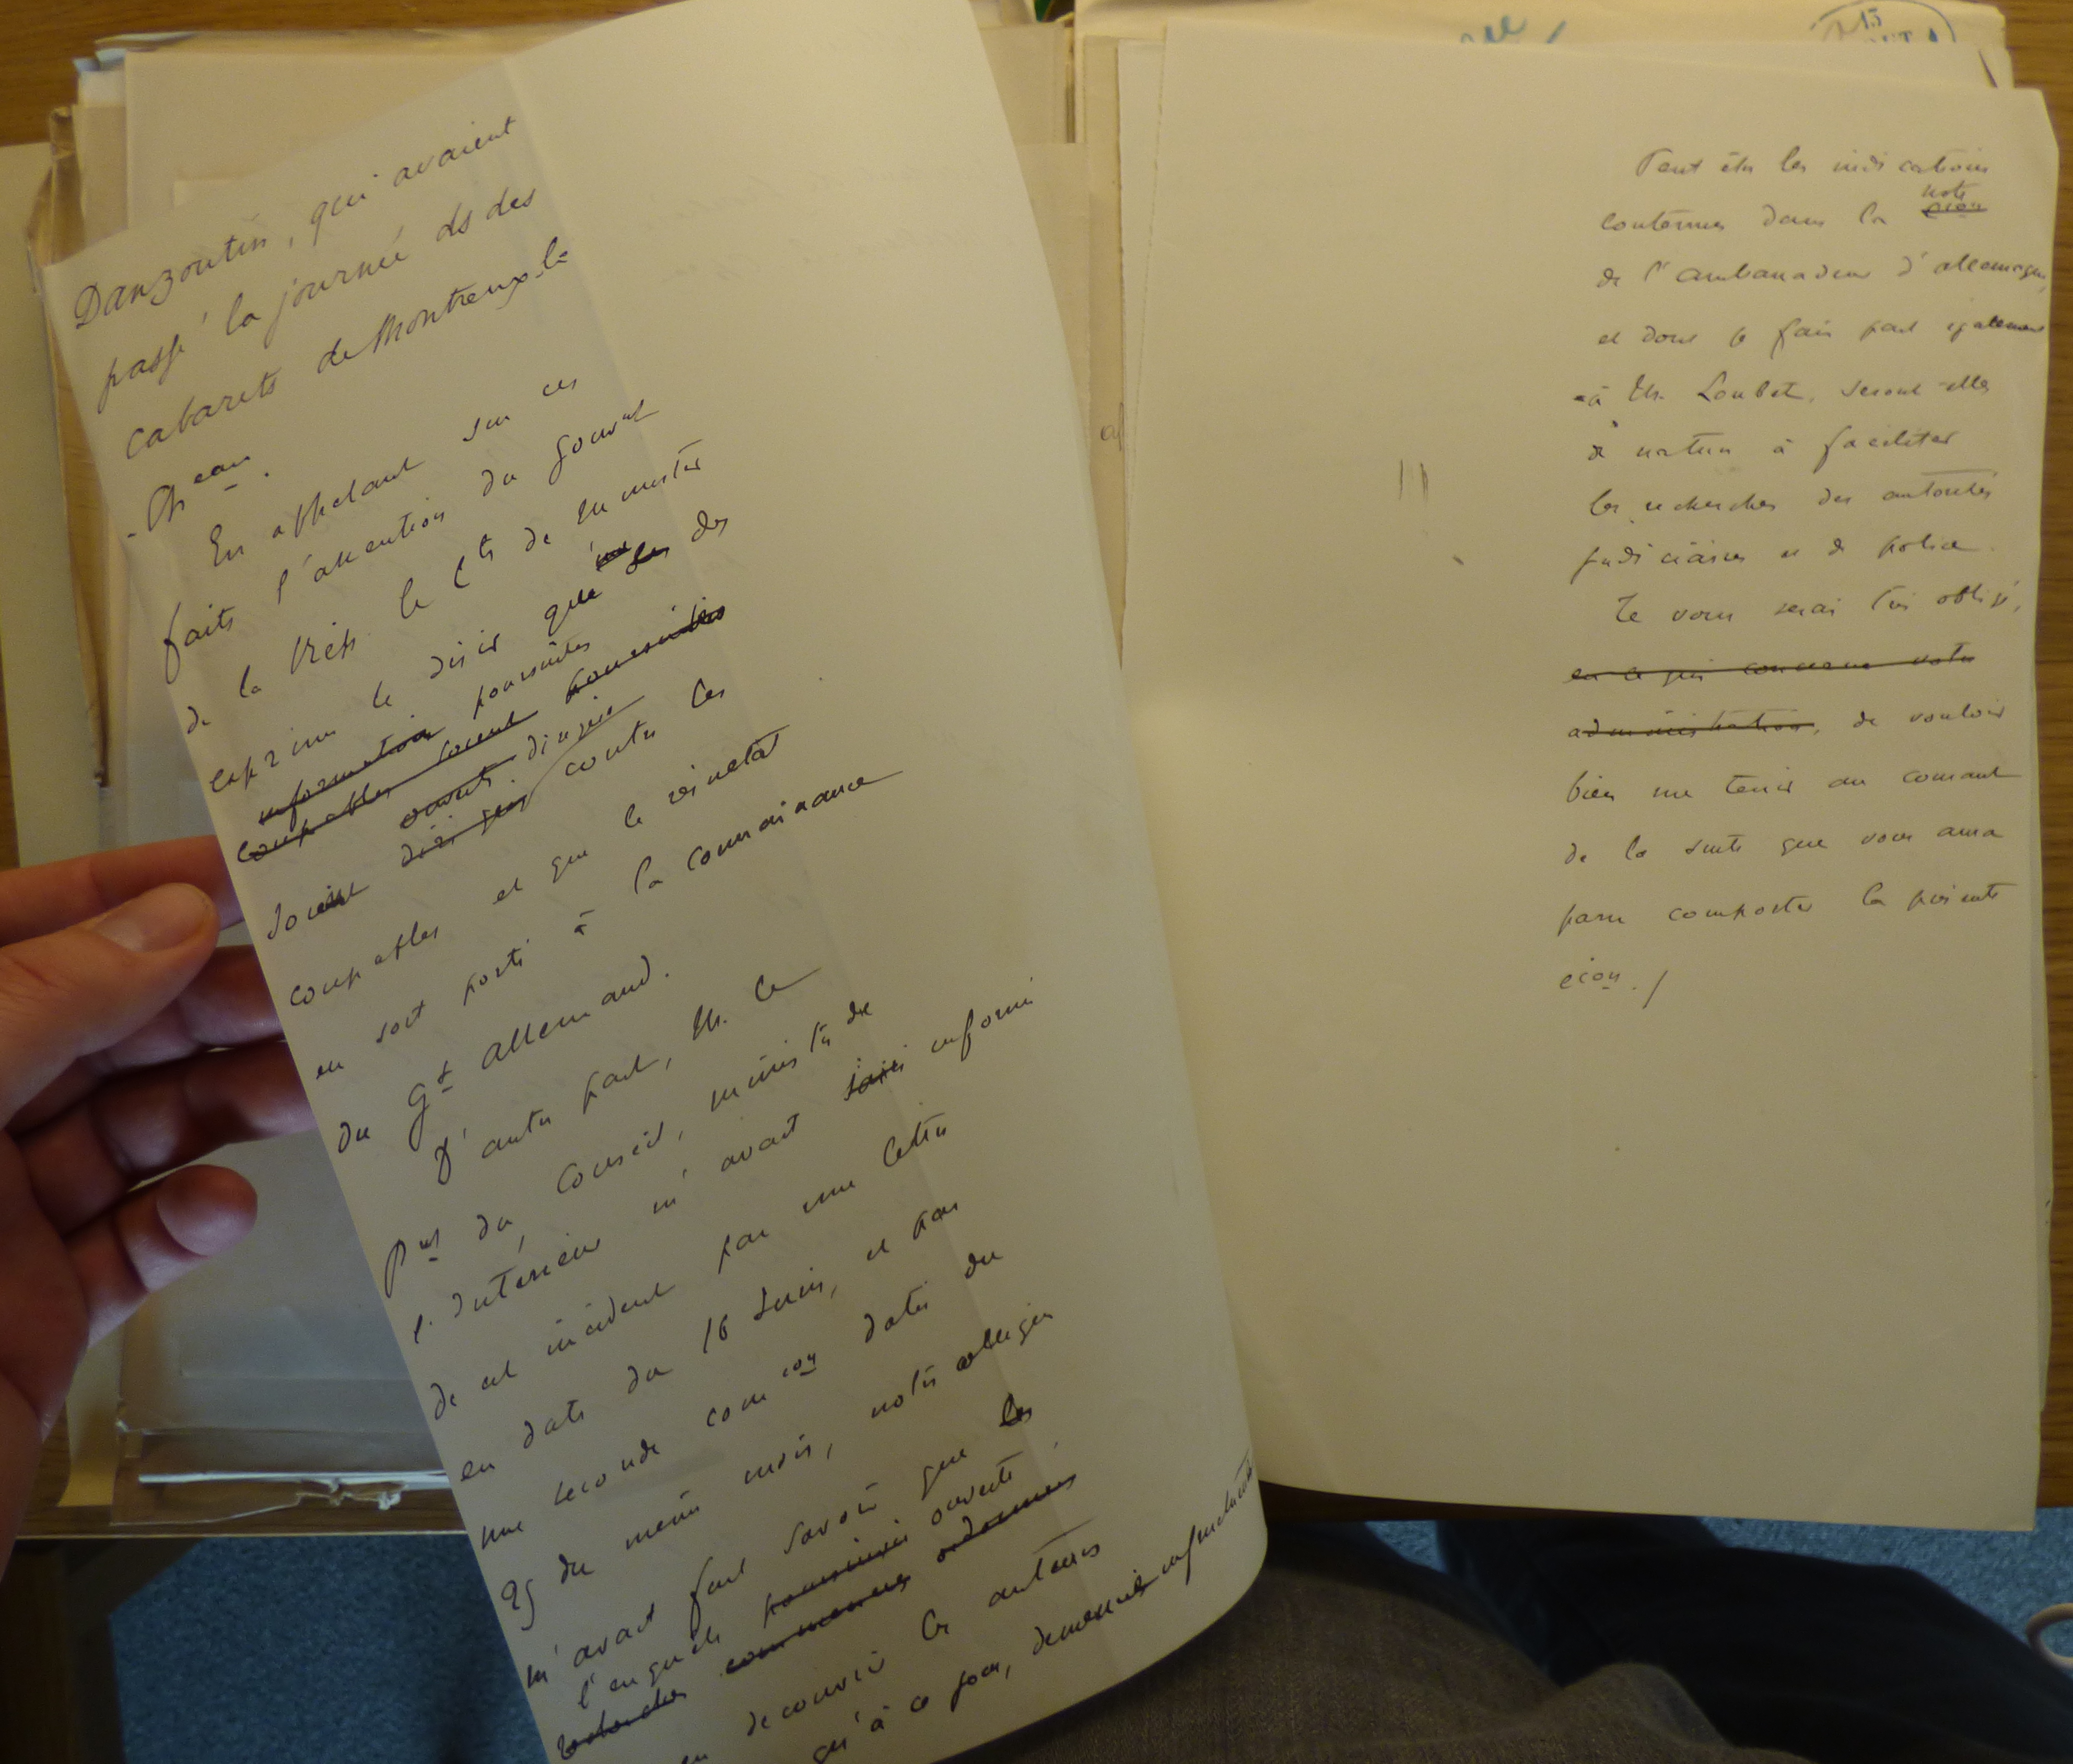 Danzoutin, qui avaient
passé la journée ds des
cabarets de Montreux-le
-Ch^eau.
En appelant sur ces
faits l'attention du gouv^nt
de la Rép. le C^te de Munster
exprime le désir que les des
information poursuites
coupables soient poursuivies
ouvert. dirigée
soient diriger contre les
coupables et que le résultat
en soit porté à la connaissance
du G^t allemand.
D'autre part, M. le
P^nt du Conseil, ministre de
l'Intérieur m'avait saisi informé
de cet incident par une lettre
en date du 16 Juin, et par
une seconde com^con datée du
25 du même mois, notre collègue
m'avait fait savoir que les
l'enquête poursuivie ouverte
recherches commencées ordonnées
découvrir les auteurs
qu'à ce jour, demeurée infructueuse
Peut être les indications
note
contenues dans la
de l'ambassadeur d'allemagne,
et dont je fais part également
à M. Loubet, seront-elles
de nature à faciliter
les recherches des autorités
judiciaires et de police.
Je vous serai très obligé,
en ce qui concerne votre
administration, de vouloir
bien me tenir au courant
de la suite que vous aura
paru comporter la présente
c^con./
15